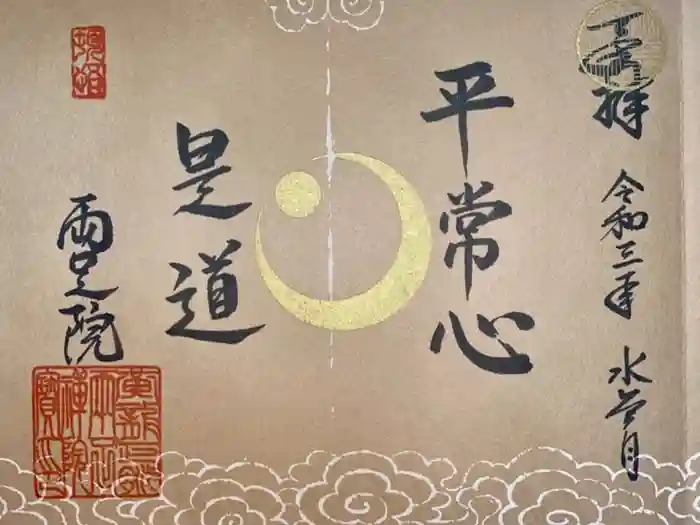 奉拝
令和三年
水無月
平常心
是道
雨足院